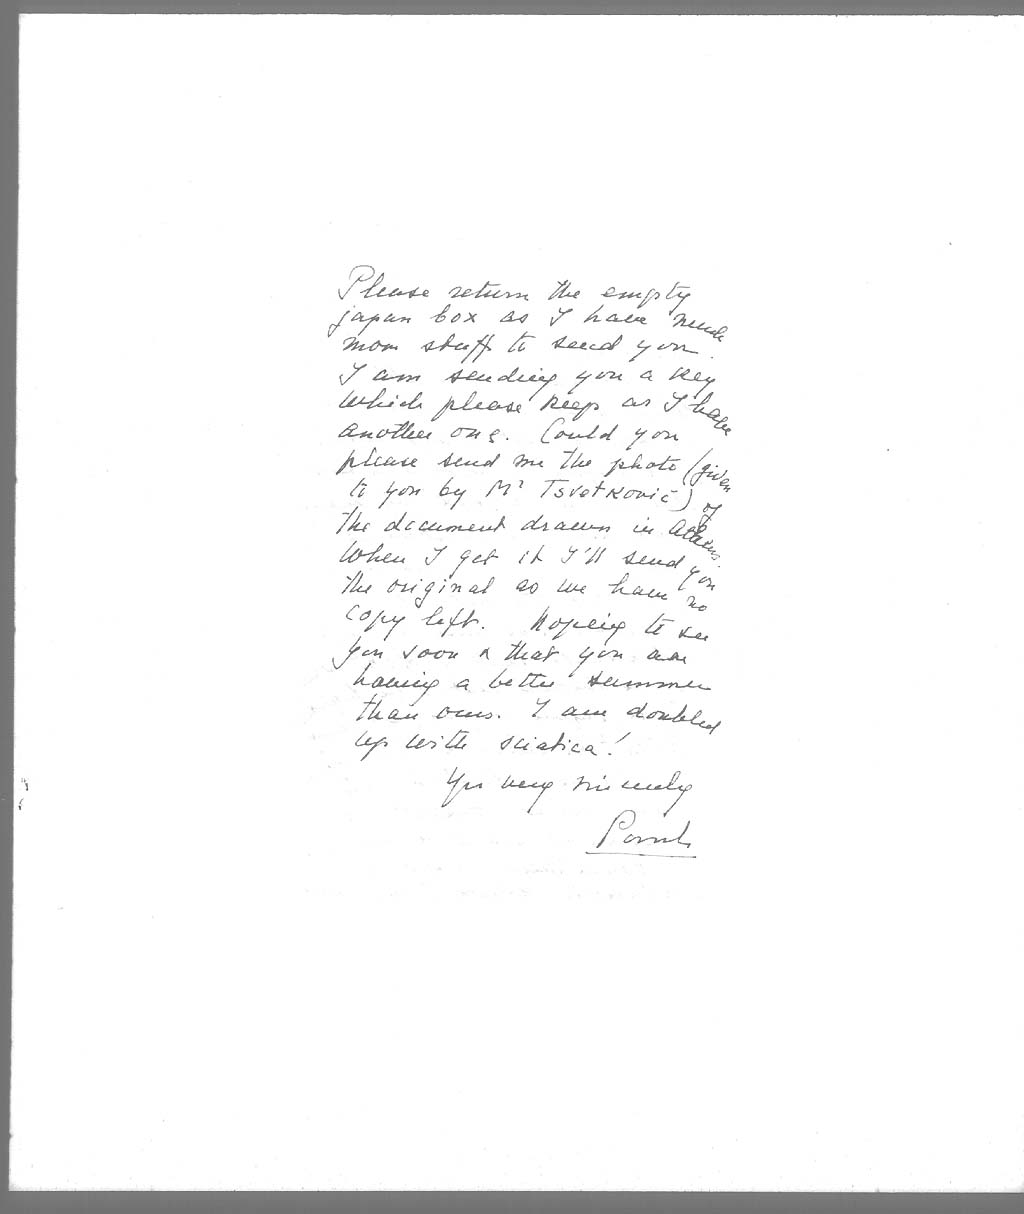 Please return the empty
japan box as I have much
more stuff to send you.
I am sending you a key
which please keep as I have
another one. Could you
please send me the photo (given
to you by Mr Tsvetković) of
the document drawn in Athens.
When I get it I'll send you
the original as we have no
copy left. Hoping to see
you soon & that you are
having a better summer
than ours. I am doubled
up with sciatica!
Yrs very sincerely